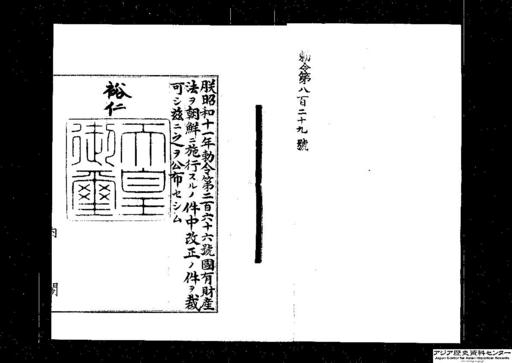 勅令第八百二十九號
朕昭和十一年勅令第二百六十六號國有財産
法ヲ朝鮮ニ施行スルノ件中改正ノ件ヲ裁
可シ茲ニ之ヲ公布セシム
裕仁
天皇
御璽
内閣
アジア歴史資料センター
Japan Center for Asian Historical Records